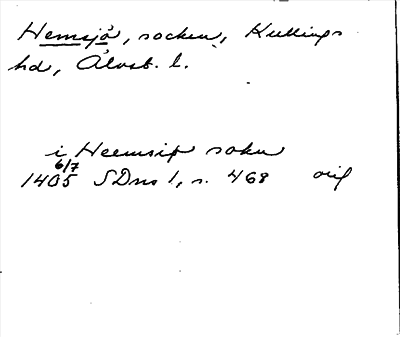 Hemsjö, socken, Kullings
hd, Älvsb. l.
i Heemsiø sokn
6/7
1405 SDns 1, s. 468 orig